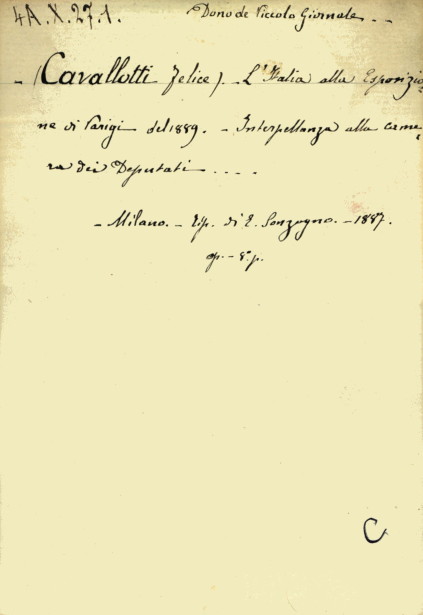 4A.X.27.1.
Dono de Piccolo Giornale . .
- (Cavallotti Felice). - L'Italia alla Esposizio=
ne di Parigi del 1889. - Interpellanza alla came=
ra dei Deputati . . . .
- Milano. - Tip. di E. Sonzogno. - 1887.
op. - 8° p.
C